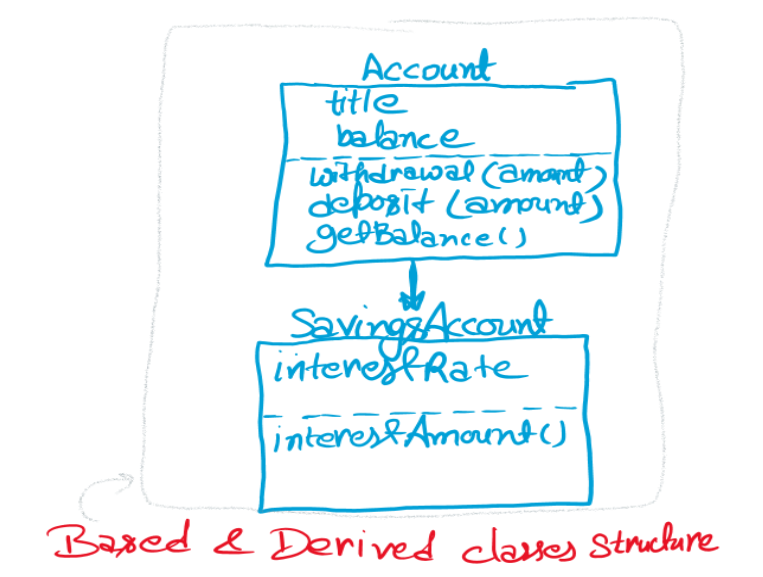 Account
title
balance
withdrawal (amount)
deposit (amount)
getBalance()
SavingsAccount
interestRate
interestAmount()
Based & Derived classes structure